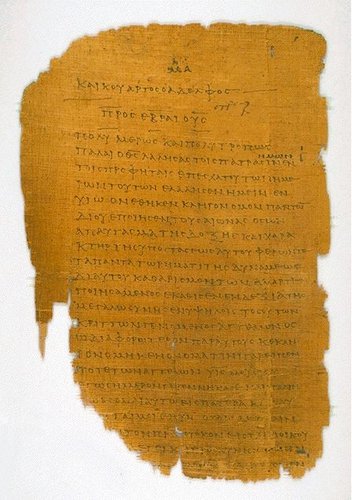 ΜΑ
ΚΑΙ ΚΟΥΑΡΤΟϹ Ο ΑΔΕΛΦΟϹ
ΠΡΟϹ ΕΒΡΑΙΟΥϹ
ΠΟΛΥΜΕΡΩϹ ΚΑΙ ΠΟΛΥΤΡΟΠΩϹ
ΗΜΩΝ
ΠΑΛΑΙ Ο ΘϹ ΛΑΛΗϹΑϹ ΤΟΙϹ ΠΑΤΡΑϹΙΝ ΕΝ
ΤΟΙϹ ΠΡΟΦΗΤΑΙϹ ΕΠ ΕϹΧΑΤΟΥ ΤΩΝ ΗΜΕ
ΡΩΝ ΤΟΥΤΩΝ ΕΛΑΛΗϹΕΝ ΗΜΕΙΝ ΕΝ
ΥΙΩ ΟΝ ΕΘΗΚΕΝ ΚΛΗΡΟΝΟΜΟΝ ΠΑΝΤΩ
ΔΙ ΟΥ ΕΠΟΙΗϹΕΝ ΤΟΥϹ ΑΙΩΝΑϹ ΟϹ ΩΝ
ΑΠΑΥΓΑϹΜΑ ΤΗϹ ΔΟΞΗϹ ΚΑΙ ΧΑΡΑ
ΚΤΗΡ ΤΗϹ ΥΠΟϹΤΑϹΕΩϹ ΑΥΤΟΥ ΦΕΡΩΝ ΤΕ
ΤΑ ΠΑΝΤΑ ΤΩ ΡΗΜΑΤΙ ΤΗϹ ΔΥΝΑΜΕΩϹ
ΔΙ ΑΥΤΟΥ ΚΑΘΑΡΙϹΜΟΝ ΤΩΝ ΑΜΑΡΤΙΩ
ΠΟΙΗϹΑΜΕΝΟϹ ΕΚΑΘΙϹΕΝ ΕΝ ΔΕΞΙΑ ΤΗϹ
ΜΕΓΑΛΩϹΥΝΗϹ ΕΝ ΥΨΗΛΟΙϹ ΤΟϹΟΥΤΩ
ΚΡΕΙΤΤΩΝ ΓΕΝΟΜΕΝΟϹ ΑΓΓΕΛΩΝ ΟϹΩ
ΔΙΑΦΟΡΩΤΕΡΟΝ ΠΑΡ ΑΥΤΟΥϹ ΚΕΚΛΗ
ΡΟΝΟΜΗΚΕΝ ΟΝΟΜΑ ΤΙΝΙ ΓΑΡ ΕΙΠΕΝ
ΠΟΤΕ ΤΩΝ ΑΓΓΕΛΩΝ ΥΙΟϹ ΜΟΥ ΕΙ ϹΥ
ΕΓΩ ϹΗΜΕΡΟΝ ΓΕΓΕΝΝΗΚΑ ϹΕ ΚΑΙ ΠΑΛΙΝ
ΕΓΩ ΕϹΟΜΑΙ ΑΥΤΩ ΕΙϹ ΠΑΤΕΡΑ ΚΑΙ ΑΥ